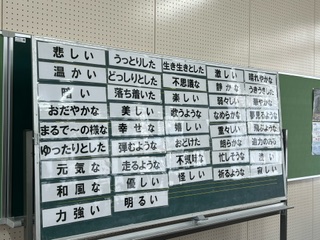 悲しい
温かい
暗い
おだやかな
まるで〜の様な
ゆったりとした
元気な
和風な
力強い
うっとりした
どっしりとした
落ち着いた
美しい
幸せな
弾むような
走るような
優しい
明るい
生き生きとした
不思議な
楽しい
歌うような
嬉しい
おどけた
不気味な
怪しい
激しい
静かな
弱々しい
なめらかな
重々しい
朗らかな
忙しそうな
祈るような
晴れやかな
うきうきした
華やかな
夢見るような
飛ぶような
迫力のある
寂しい